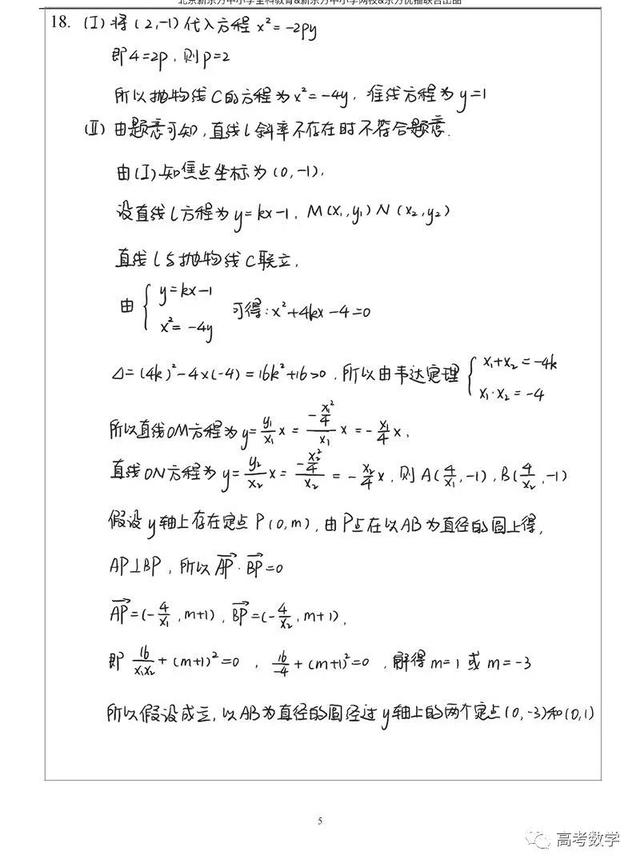 北京新东方中小学全科教育&新东方中小学网校&东方优播联合出品
18. (Ⅰ) 将 (2,-1) 代入方程 x²=-2py
即 4=2p, 则 p=2
所以抛物线C的方程为 x²=-4y, 准线方程为 y=1
(Ⅱ) 由题意可知, 直线 l 斜率不存在时不符合题意.
由(Ⅰ)知焦点坐标为 (0,-1).
设直线 l 方程为 y=kx-1, M(x₁,y₁) N(x₂,y₂)
直线 l 与抛物线C联立.
由 { y=kx-1 x²=-4y 可得: x²+4kx-4=0
Δ=(4k)²-4×(-4)=16k²+16>0. 所以由韦达定理 { x₁+x₂=-4k x₁·x₂=-4
所以直线OM方程为 y=y₁/x₁ x = (-x₁²/4)/x₁ x = -x₁/4 x,
直线ON方程为 y=y₂/x₂ x = (-x₂²/4)/x₂ = -x₂/4 x, 则 A(4/x₁,-1), B(4/x₂,-1)
假设 y 轴上存在定点 P(0,m), 由 P点在以AB为直径的圆上得,
AP⊥BP, 所以 AP·BP=0
AP=(-4/x₁, m+1), BP=(-4/x₂, m+1),
即 16/x₁x₂+(m+1)²=0, 16/-4+(m+1)²=0, 解得 m=1 或 m=-3
所以假设成立, 以AB为直径的圆经过 y轴上的两个定点 (0,-3)和(0,1)
5
高考数学